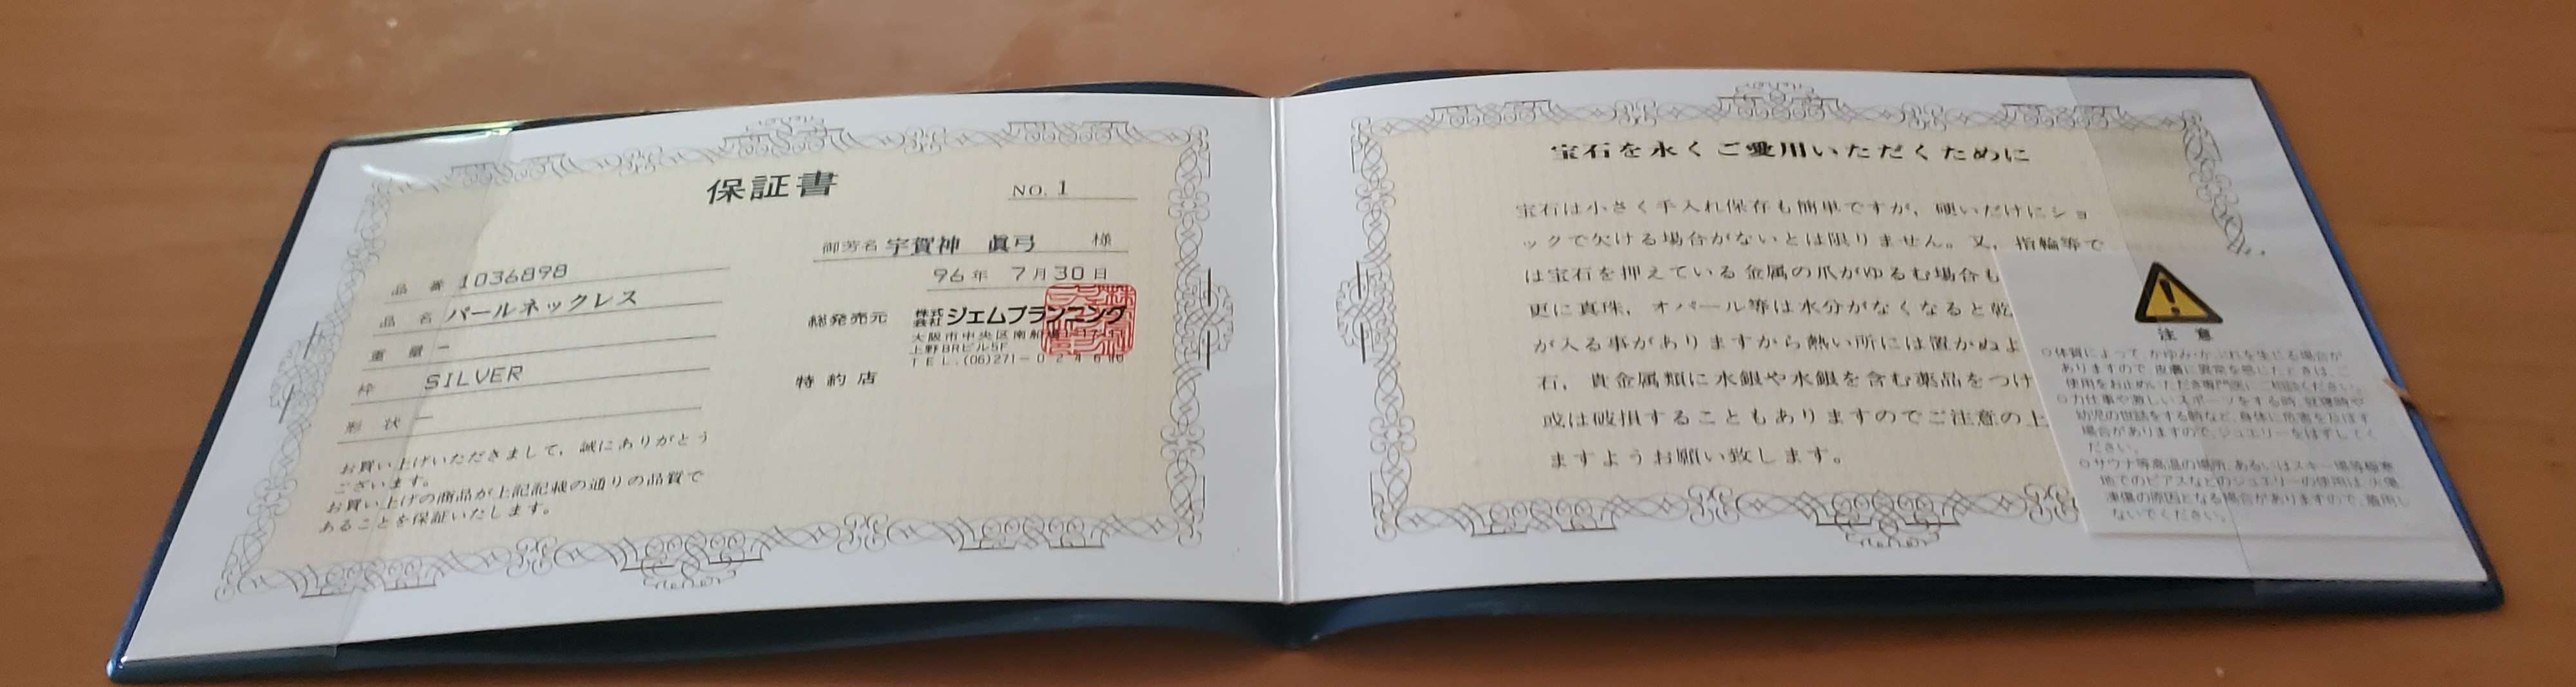 保証書
NO. 1
御芳名 宇賀神 眞弓 様
96年 7月30日
品番 1036898
品名 パールネックレス
重量 －
枠 SILVER
形状 －
総発売元 株式会社 ジェムプランニング
大阪市中央区南船場1-17-11
上野BRビル5F
TEL.(06)271-0248
特約店
お買い上げいただきまして，誠にありがとう
ございます。
お買い上げの商品が上記記載の通りの品質で
あることを保証いたします。
宝石を永くご愛用いただくために
宝石は小さく手入れ保存も簡単ですが，硬いだけにショ
ックで欠ける場合がないとは限りません。又，指輪等で
は宝石を押えている金属の爪がゆるむ場合も
更に真珠，オパール等は水分がなくなると乾
が入る事がありますから熱い所には置かぬよ
石，貴金属類に水銀や水銀を含む薬品をつけ
或は破損することもありますのでご注意の上
ますようお願い致します。
注意
○体質によって、かゆみ・かぶれを生じる場合が
ありますので、皮膚に異常を感じたときは、ご
使用をお止めいただき専門医にご相談ください。
○力仕事や激しいスポーツをする時、就寝時や
幼児の世話をする時など、身体に危害を及ぼす
場合がありますので、ジュエリーをはずしてく
ださい。
○サウナ等高温の場所、あるいはスキー場等極寒
地でのピアスなどのジュエリーの使用は、火傷、
凍傷の原因となる場合がありますので、着用し
ないでください。